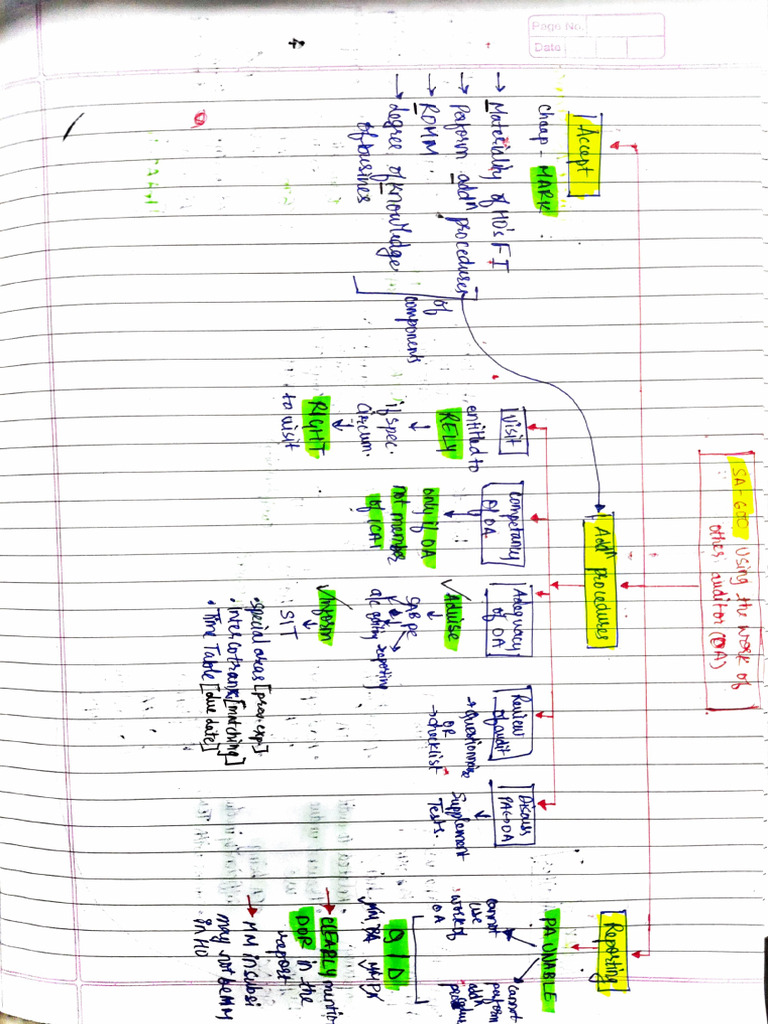 Page No.
Date
SA-600 Using the work of
other auditor (OA)
Accept
Chaap - MARK
→ Materiality of HO's FI
→ Perform addn procedures
→ ROMM
→ degree of knowledge
of busines
of
components
Addn procedures
Visit
entitled to
RELY
↓
if spec.
circum.
↓
RIGHT
to visit
Competancy
of OA
↓
only if OA
not member
of ICAI
Adequacy
of OA
✓ Advise
↓
a/c reporting
✓ Inform
↓
SIT
• special areas [prov. exp.]
• Intercotrank [matching]
• Time Table [due date]
Review
of audit
→ questionnaire
OR
→ checklist
Discuss
PA↔OA
↓
Supplement
Tests.
Reporting
PA UNABLE
cannot
use
work of
OA
cannot
perform
addn
QID
✓ MM, PA
→ CLEARLY mention
DOR in the
report
→ MM in subsi
may not be MM
in HO